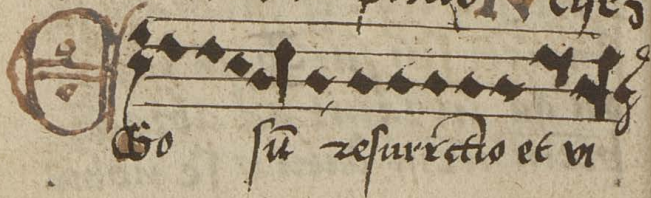 EGo sū resurrectio et vi